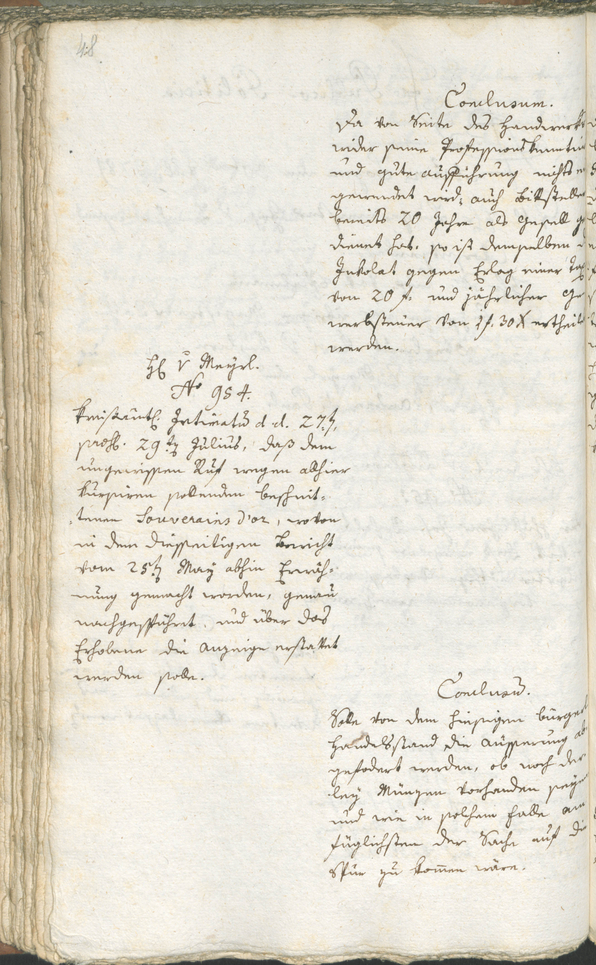 48
Conclusum.
Da von Seite des Handwerks
wider seine Professionskenntniß
und gute Aufführung nichts ein
gewendet wird, auch Bittsteller
bereits 20 Jahre als Gesell ge
dienet hat, so ist demselben das
Inkolat gegen Erlag einer Tax
von 20 f. und jährlicher Ge
werbsteuer von 1 f. 30 X ertheilt
worden.
H v Mayrl.
No 984.
Kreisämtl. Intimatum d. d. 27.
praes. 29.ten Julius, daß dem
ungewissen Ruf wegen allhier
kursiren sollenden beschnit-
tenen Souverains d'or, wovon
in dem diesseitigen Bericht
vom 25ten May abhin Erwäh-
nung gemacht worden, genau
nachgespührt, und über das
Erhobene die Anzeige erstattet
werden solle.
Conclusum.
Solle von dem hiesigen bürgerl
Handelsstand die Aüsserung ab
gefodert werden, ob noch der
ley Münzen vorhanden seyen
und wie in solchem Falle am
füglichsten der Sache auf die
Spur zu kommen wäre.